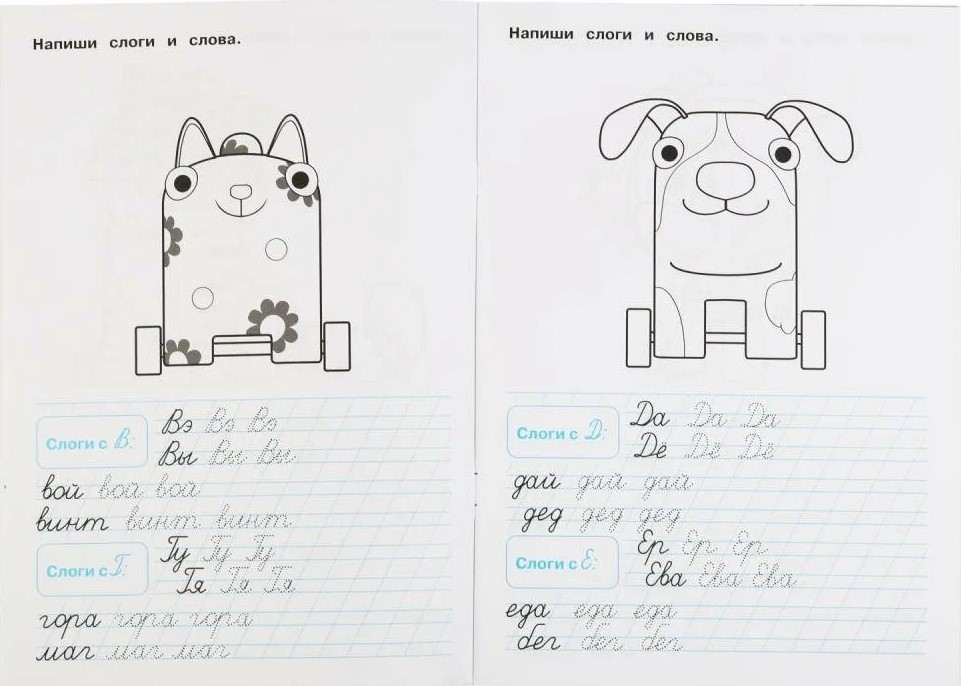 Напиши слоги и слова.
Слоги с В:
Вэ Вэ Вэ
Вы Вы Вы
вой вой вой
винт винт винт
Слоги с Г:
Гу Гу Гу
Гя Гя Гя
гора гора гора
маг маг маг
Напиши слоги и слова.
Слоги с Д:
Да Да Да
Дё Дё Дё
дай дай дай
дед дед дед
Слоги с Е:
Ер Ер Ер
Ева Ева Ева
еда еда еда
бег бег бег